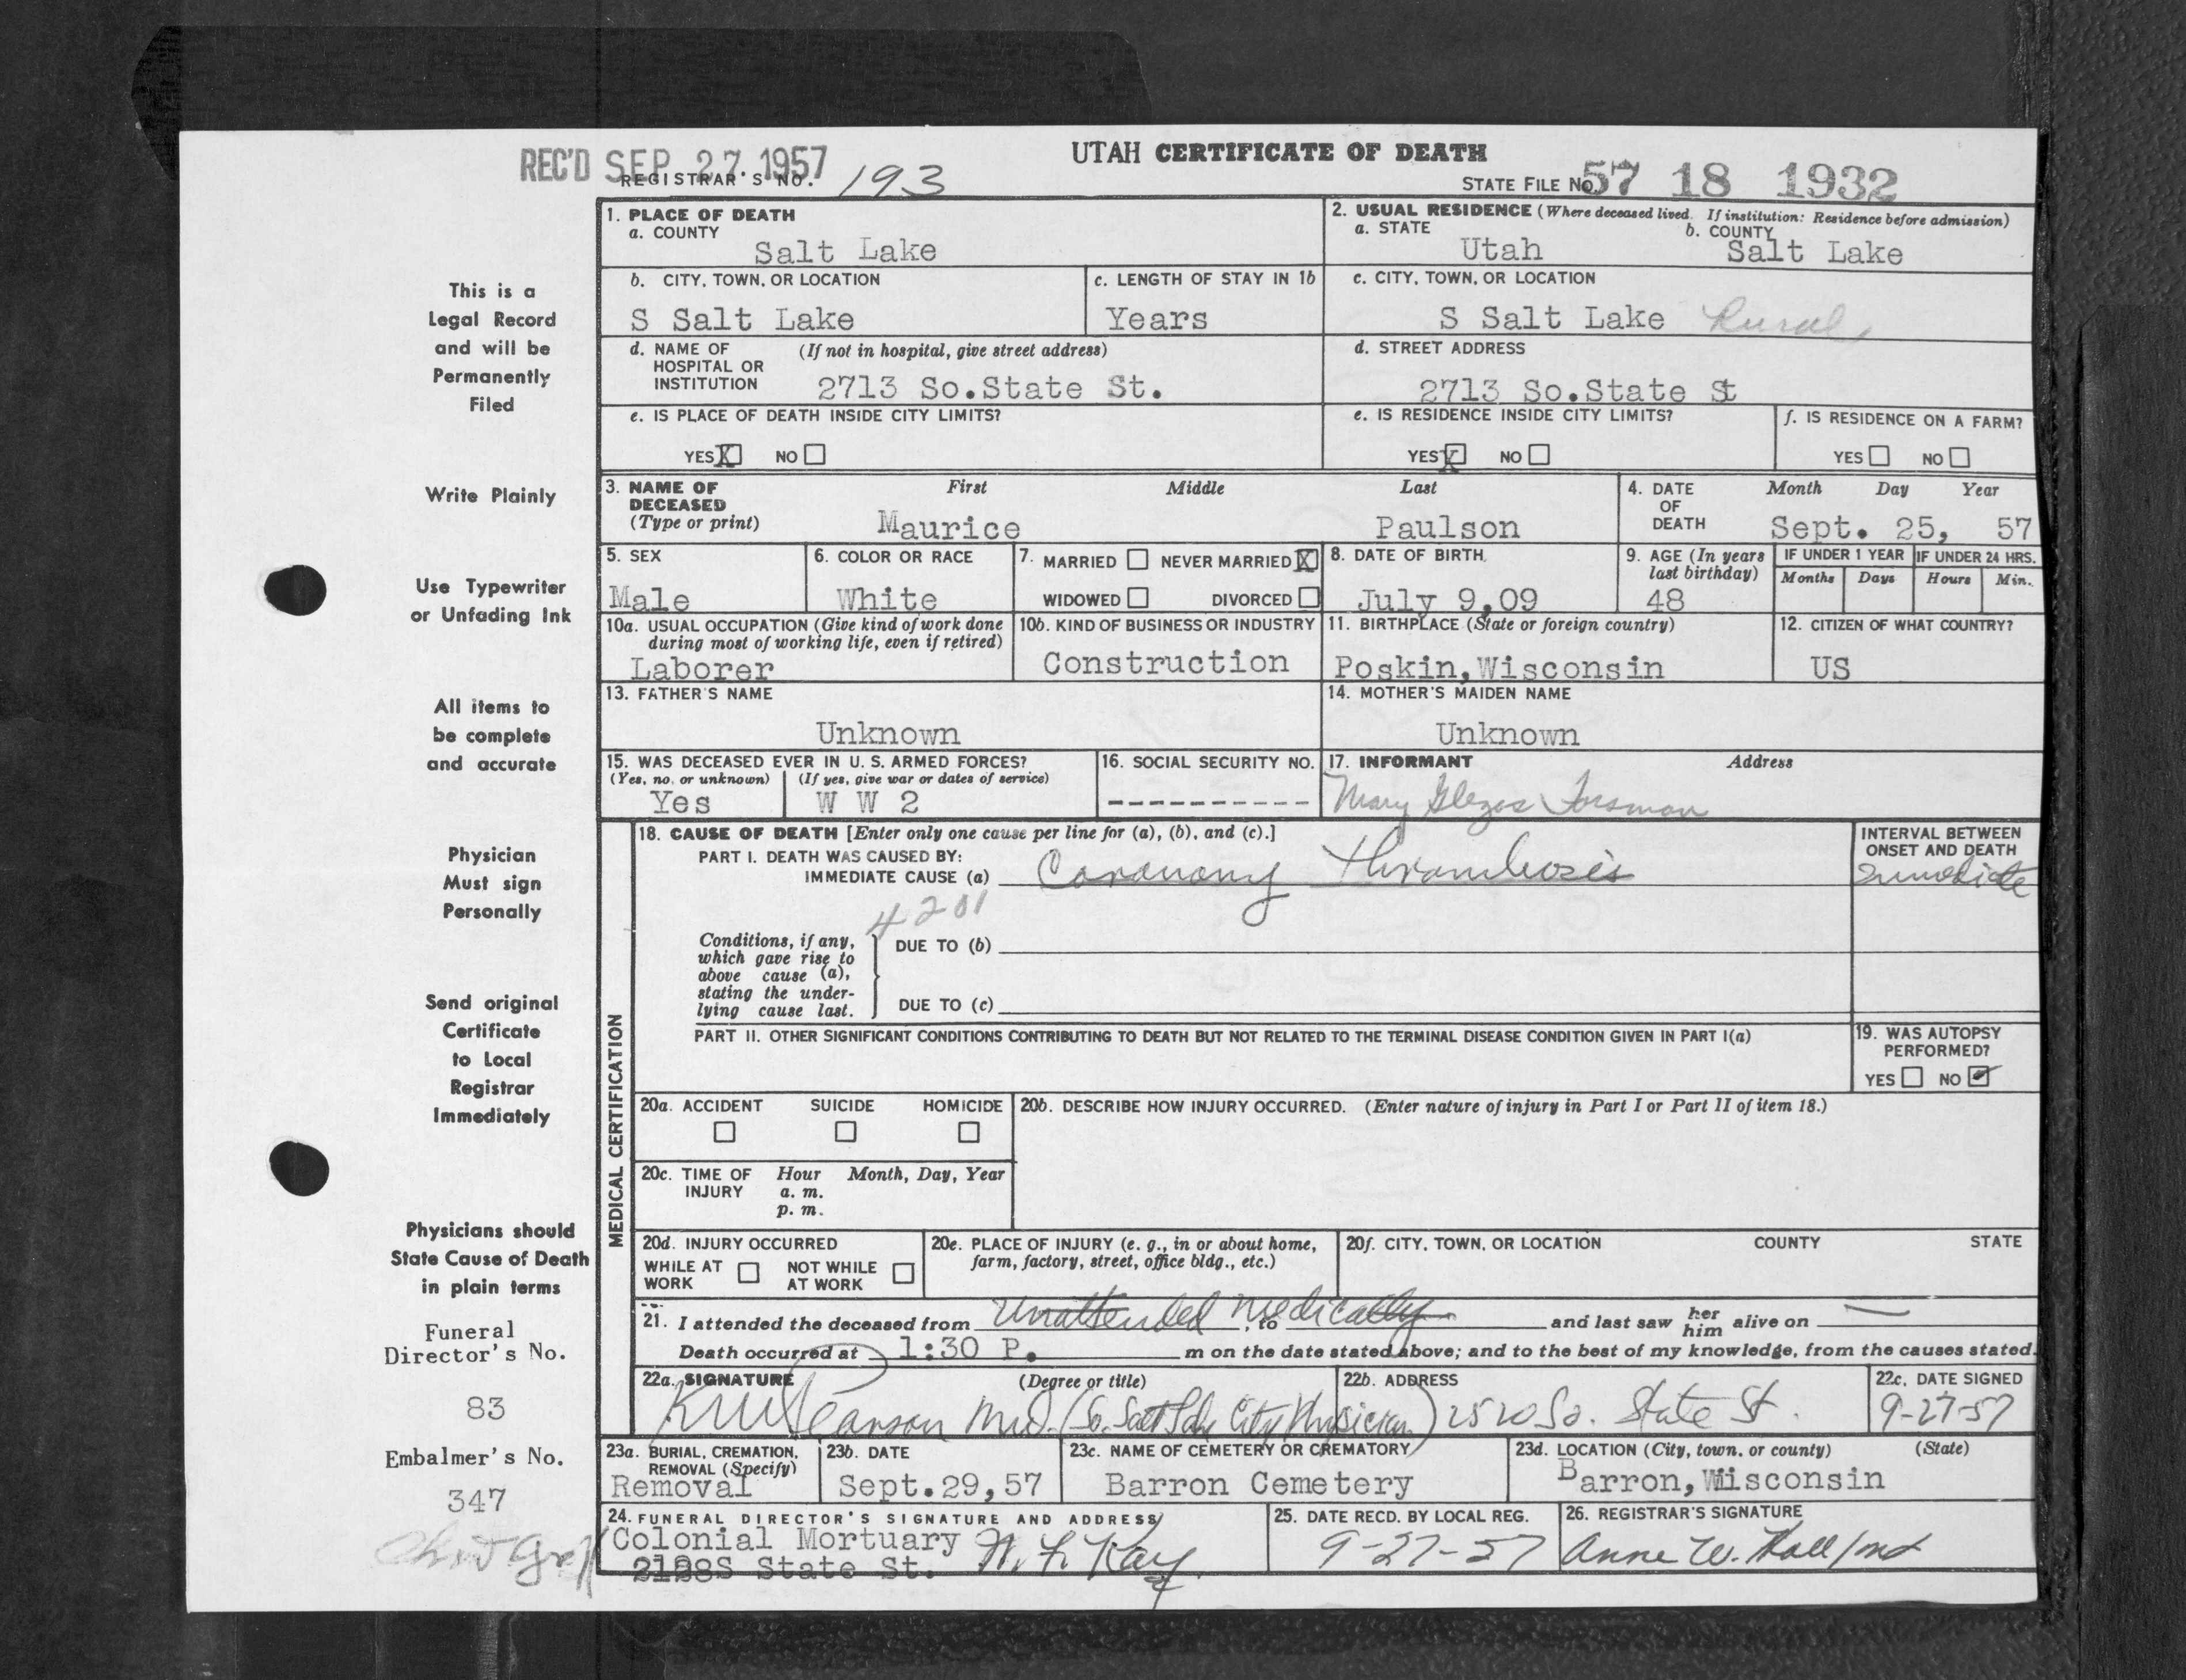 REC'D SEP 27 1957
UTAH CERTIFICATE OF DEATH
REGISTRAR'S NO. 193
STATE FILE No. 57 18 1932
This is a
Legal Record
and will be
Permanently
Filed
Write Plainly
Use Typewriter
or Unfading Ink
All items to
be complete
and accurate
Physician
Must sign
Personally
Send original
Certificate
to Local
Registrar
Immediately
Physicians should
State Cause of Death
in plain terms
Funeral
Director's No.
83
Embalmer's No.
347
1. PLACE OF DEATH
a. COUNTY
Salt Lake
2. USUAL RESIDENCE (Where deceased lived. If institution: Residence before admission)
a. STATE b. COUNTY
Utah Salt Lake
b. CITY, TOWN, OR LOCATION
S Salt Lake
c. LENGTH OF STAY IN 1b
Years
c. CITY, TOWN, OR LOCATION
S Salt Lake Rural
d. NAME OF (If not in hospital, give street address)
HOSPITAL OR
INSTITUTION 2713 So.State St.
d. STREET ADDRESS
2713 So.State St
e. IS PLACE OF DEATH INSIDE CITY LIMITS?
YES X NO
e. IS RESIDENCE INSIDE CITY LIMITS?
YES X NO
f. IS RESIDENCE ON A FARM?
YES NO
3. NAME OF First Middle Last
DECEASED
(Type or print) Maurice Paulson
4. DATE Month Day Year
OF
DEATH Sept. 25, 57
5. SEX
Male
6. COLOR OR RACE
White
7. MARRIED NEVER MARRIED X
WIDOWED DIVORCED
8. DATE OF BIRTH
July 9,09
9. AGE (In years
last birthday)
48
IF UNDER 1 YEAR IF UNDER 24 HRS.
Months Days Hours Min.
10a. USUAL OCCUPATION (Give kind of work done
during most of working life, even if retired)
Laborer
10b. KIND OF BUSINESS OR INDUSTRY
Construction
11. BIRTHPLACE (State or foreign country)
Poskin,Wisconsin
12. CITIZEN OF WHAT COUNTRY?
US
13. FATHER'S NAME
Unknown
14. MOTHER'S MAIDEN NAME
Unknown
15. WAS DECEASED EVER IN U. S. ARMED FORCES?
(Yes, no, or unknown) (If yes, give war or dates of service)
Yes W W 2
16. SOCIAL SECURITY NO.
-----------
17. INFORMANT Address
Mary Glezos Forsman
MEDICAL CERTIFICATION
18. CAUSE OF DEATH [Enter only one cause per line for (a), (b), and (c).]
PART I. DEATH WAS CAUSED BY:
IMMEDIATE CAUSE (a) Coronary thrombosis
INTERVAL BETWEEN
ONSET AND DEATH
Immediate
4201
Conditions, if any,
which gave rise to
above cause (a),
stating the under-
lying cause last.
DUE TO (b)
DUE TO (c)
PART II. OTHER SIGNIFICANT CONDITIONS CONTRIBUTING TO DEATH BUT NOT RELATED TO THE TERMINAL DISEASE CONDITION GIVEN IN PART I(a)
19. WAS AUTOPSY
PERFORMED?
YES NO
20a. ACCIDENT SUICIDE HOMICIDE
20b. DESCRIBE HOW INJURY OCCURRED. (Enter nature of injury in Part I or Part II of item 18.)
20c. TIME OF Hour Month, Day, Year
INJURY a. m.
p. m.
20d. INJURY OCCURRED
WHILE AT NOT WHILE
WORK AT WORK
20e. PLACE OF INJURY (e. g., in or about home,
farm, factory, street, office bldg., etc.)
20f. CITY, TOWN, OR LOCATION COUNTY STATE
21. I attended the deceased from Unattended, to Medically and last saw her him alive on —
Death occurred at 1:30 P. m on the date stated above; and to the best of my knowledge, from the causes stated.
22a. SIGNATURE (Degree or title)
KW Pearson M.D. (So. Salt Lake City Physician)
22b. ADDRESS
2520 So. State St.
22c. DATE SIGNED
9-27-57
23a. BURIAL, CREMATION,
REMOVAL (Specify)
Removal
23b. DATE
Sept.29,57
23c. NAME OF CEMETERY OR CREMATORY
Barron Cemetery
23d. LOCATION (City, town, or county) (State)
Barron, Wisconsin
24. FUNERAL DIRECTOR'S SIGNATURE AND ADDRESS
Colonial Mortuary
2128S State St.
25. DATE RECD. BY LOCAL REG.
9-27-57
26. REGISTRAR'S SIGNATURE
Anne W. Hall/md